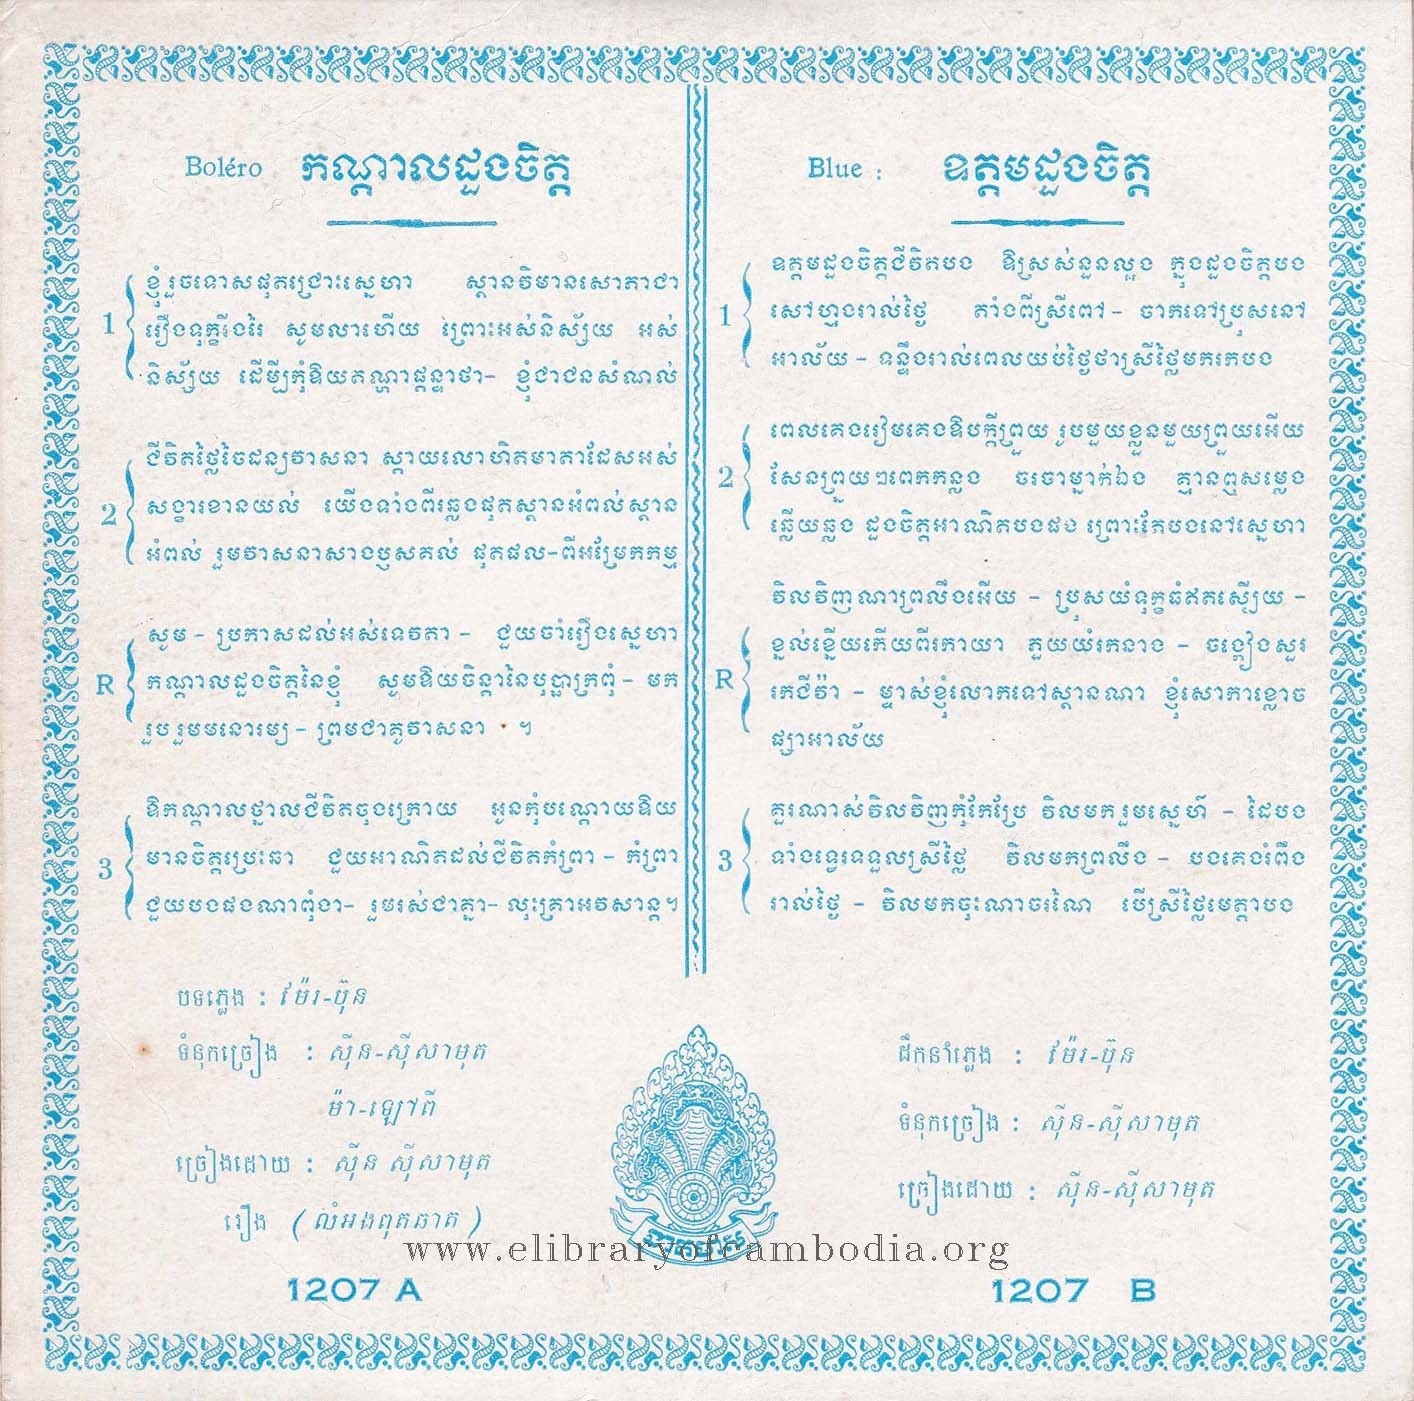 Boléro កណ្ដាលដួងចិត្ត
1
ខ្ញុំរួចទោសផុតជ្រោះស្នេហា ស្ថានវិមានសោភាជា
រឿងទុក្ខរីងរៃ សូមលាហើយ ព្រោះអស់និស្ស័យ អស់
និស្ស័យ ដើម្បីកុំឱយតណ្ហាផ្ដន្ទាថា– ខ្ញុំជាជនសំណល់
2
ជីវិតថ្លៃចៃដន្យវាសនា ស្ដាយលោហិតមាតាដែសអស់
សង្ខារខានយល់ យើងទាំងពីរឆ្លងផុតស្ពានអំពល់ស្ពាន
អំពល់ រួមវាសនាសាងឫសគល់ ផុតផល–ពីអម្រែកកម្ម
R
សូម – ប្រកាសដល់អស់ទេវតា – ជួយចាំរឿងស្នេហា
កណ្ដាលដួងចិត្តនៃខ្ញុំ សូមឱយចិន្ដានៃបុប្ផាក្រពុំ – មក
រួប រួមមនោរម្យ – ព្រមជាគូវាសនា ។
3
ឱកណ្ដាលថ្នាលជីវិតចុងក្រោយ អូនកុំបណ្ដោយឱយ
មានចិត្តប្រេះឆា ជួយអាណិតដល់ជីវិតកំព្រា – កំព្រា
ជួយបងផងណាពុំងា– រួមរស់ជាគ្នា– លុះគ្រាអវសាន្ត។
បទភ្លេង : ម៉ែរ-ប៊ុន
ទំនុកច្រៀង : ស៊ីន-ស៊ីសាមុត
ម៉ា-ឡៅពី
ច្រៀងដោយ : ស៊ីន ស៊ីសាមុត
រឿង ( លំអងពុតឆាត )
1207 A
Blue : ឧត្តមដួងចិត្ត
1
ឧត្តមដួងចិត្តជីវិតបង ឱស្រស់នួនល្អង ក្នុងដួងចិត្តបង
សៅហ្មងរាល់ថ្ងៃ តាំងពីស្រីពៅ – ចាកទៅប្រុសនៅ
អាល័យ – ទន្ទឹងរាល់ពេលយប់ថ្ងៃថាស្រីថ្លៃមករកបង
2
ពេលគេងរៀមគេងឱបក្ដីព្រួយ រូបមួយខ្លួនមួយព្រួយអើយ
សែនព្រួយៗពេកកន្លង ចរចាម្នាក់ឯង គ្មានឮសម្លេង
ឆ្លើយឆ្លង ដួងចិត្តអាណិតបងផង ព្រោះតែបងនៅស្នេហា
R
វិលវិញណាព្រលឹងអើយ – ប្រុសយំទុក្ខធំឥតស្បើយ –
ខ្នល់ខ្នើយកើយពីរកាយា ភួយយំរកនាង – ចង្កៀងសួរ
រកជីវ៉ា – ម្ចាស់ខ្ញុំលោកទៅស្ថានណា ខ្ញុំសោកាខ្លោច
ផ្សាអាល័យ
3
គួរណាស់វិលវិញកុំកែប្រែ វិលមក រួមស្នេហ៍ – ដៃបង
ទាំងទ្វេរទទួលស្រីថ្លៃ វិលមកព្រលឹង – បងគេងរំពឹង
រាល់ថ្ងៃ – វិលមកចុះណាចរណៃ បើស្រីថ្លៃមេត្តាបង
ដឹកនាំភ្លេង : ម៉ែរ-ប៊ុន
ទំនុកច្រៀង : ស៊ីន-ស៊ីសាមុត
ច្រៀងដោយ : ស៊ីន-ស៊ីសាមុត
1207 B
www.elibraryofcambodia.org